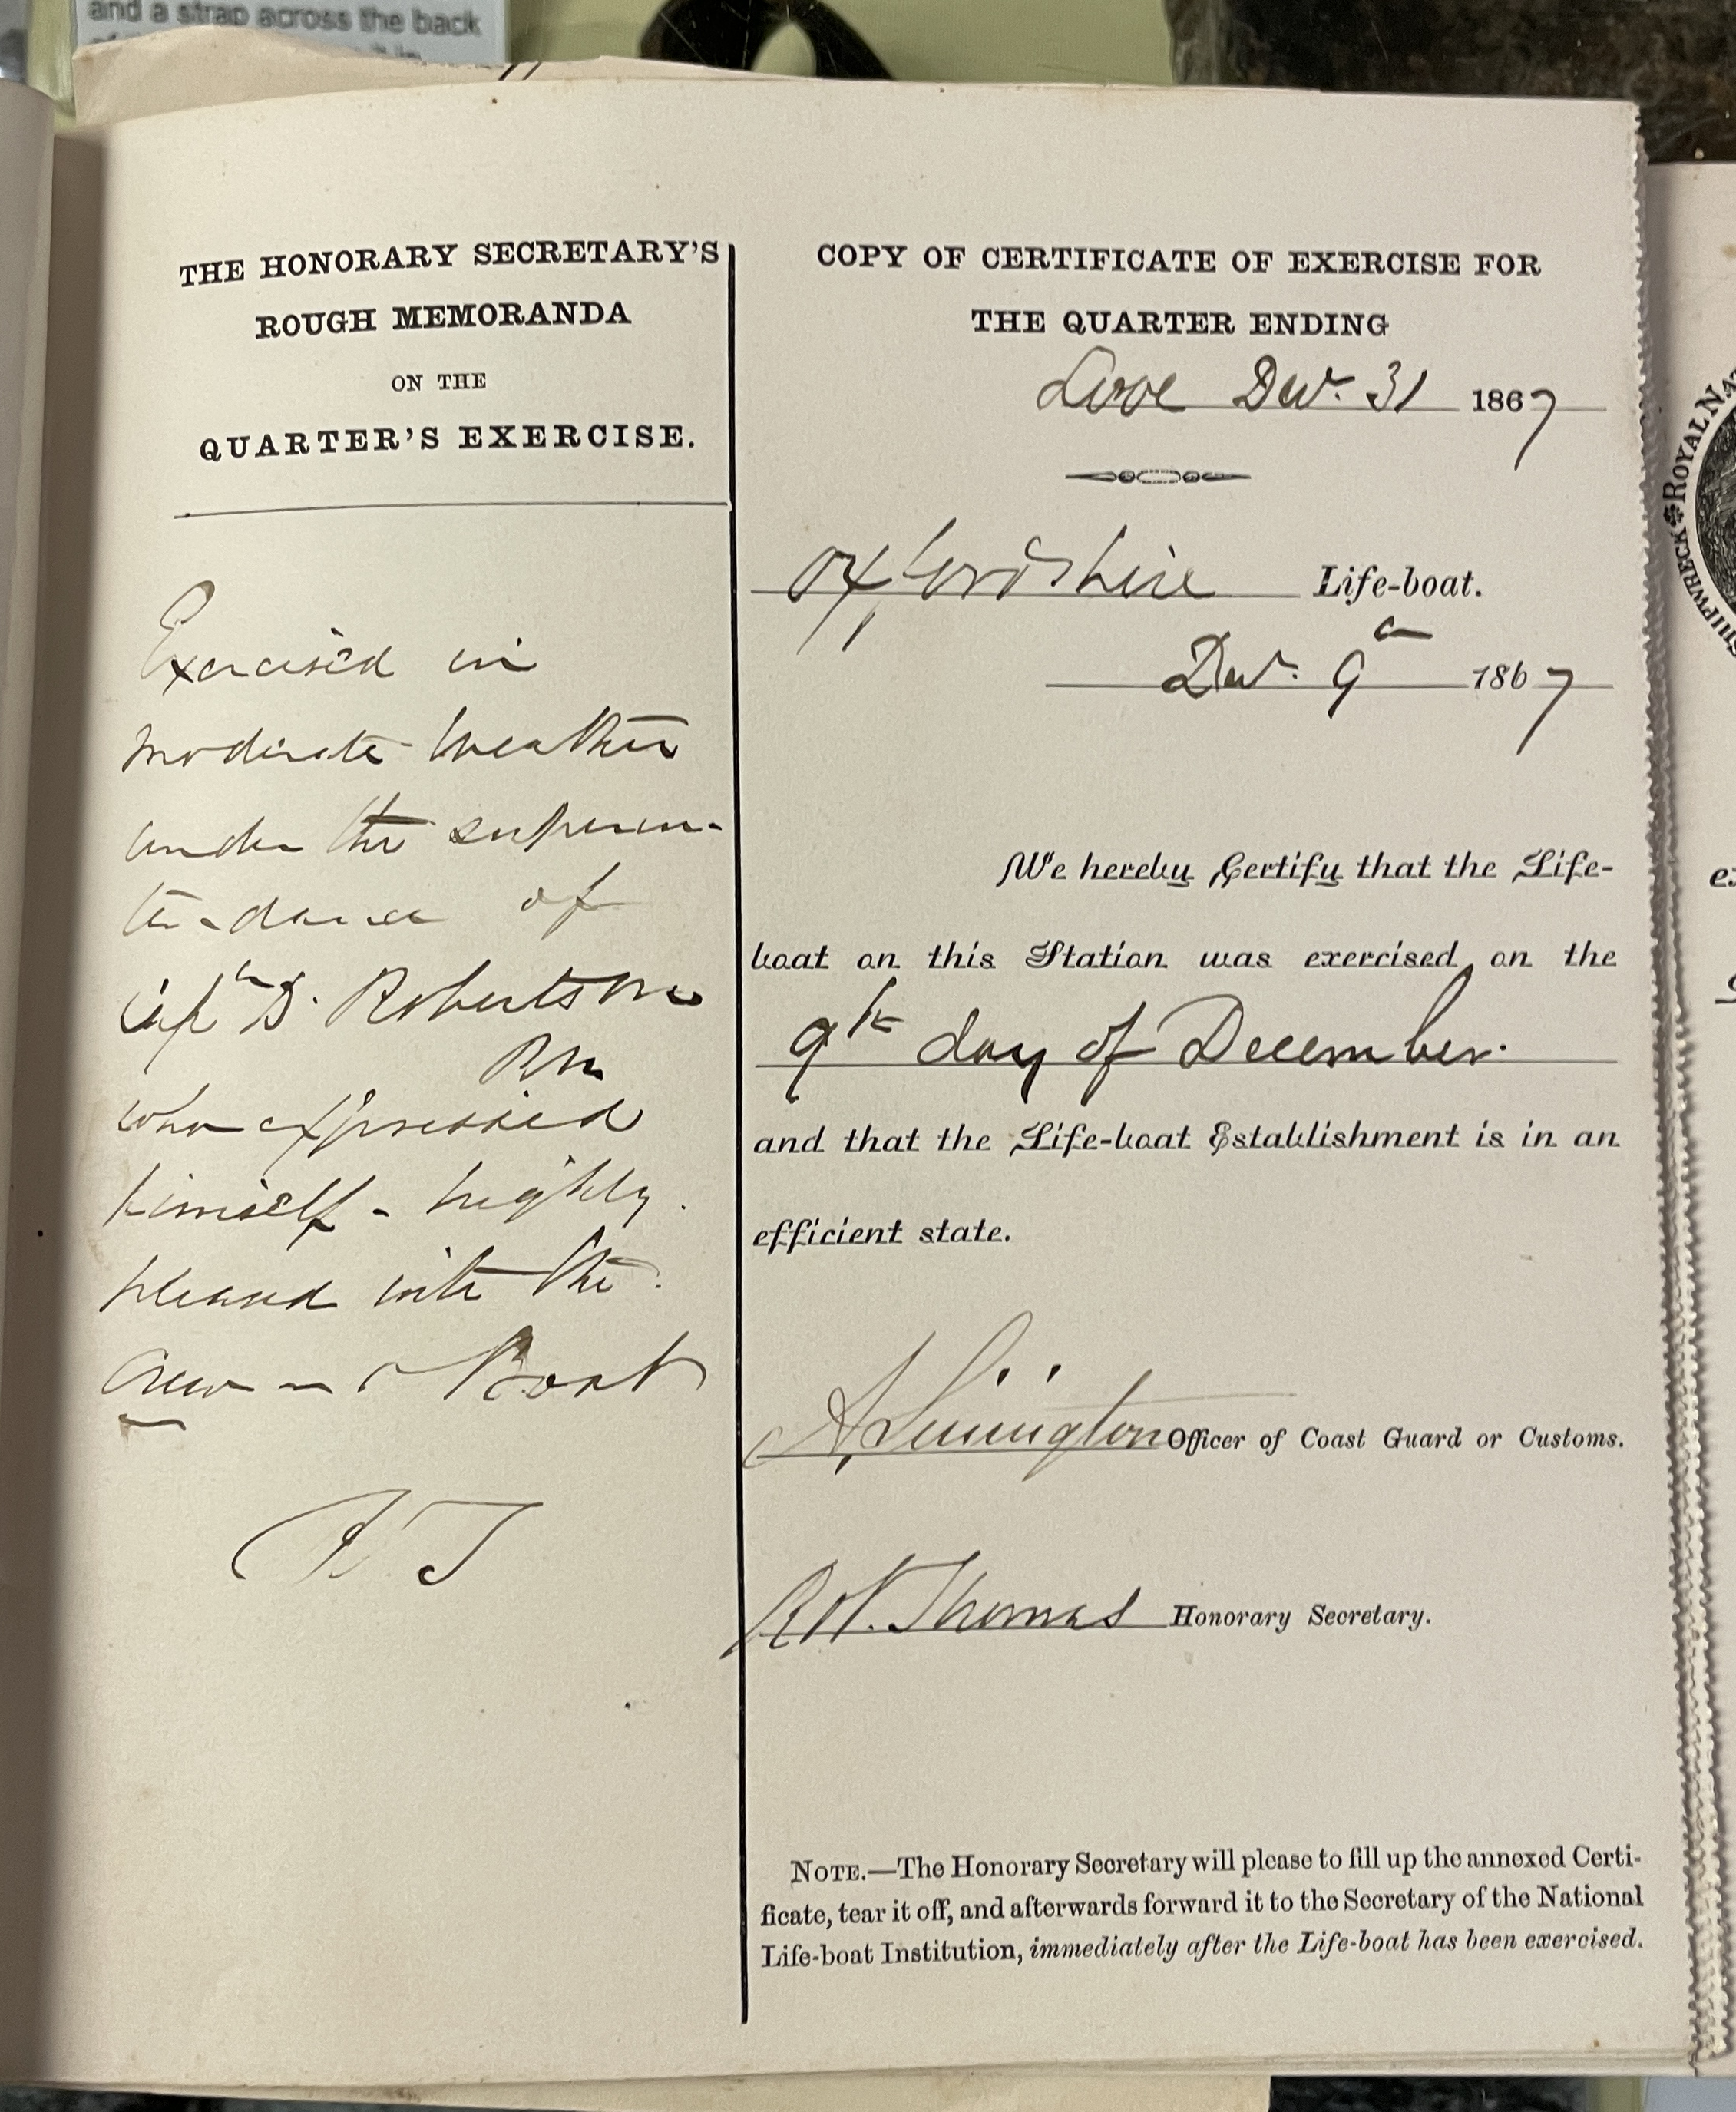 and a strap across the back
THE HONORARY SECRETARY'S
ROUGH MEMORANDA
ON THE
QUARTER'S EXERCISE.
Exercised in
moderate weather
under the superin-
tendance of
Capn D. Robertson
RN
who expressed
himself highly
pleased with the
Crew and Boat
COPY OF CERTIFICATE OF EXERCISE FOR
THE QUARTER ENDING
Looe Decr. 31 1867
Oxfordshire Life-boat.
Decr. 9th 1867
We hereby Certify that the Life-
boat on this Station was exercised on the
9th day of December.
and that the Life-boat Establishment is in an
efficient state.
Officer of Coast Guard or Customs.
Thomas Honorary Secretary.
NOTE.—The Honorary Secretary will please to fill up the annexed Certi-
ficate, tear it off, and afterwards forward it to the Secretary of the National
Life-boat Institution, immediately after the Life-boat has been exercised.
SHIPWRECK ROYAL